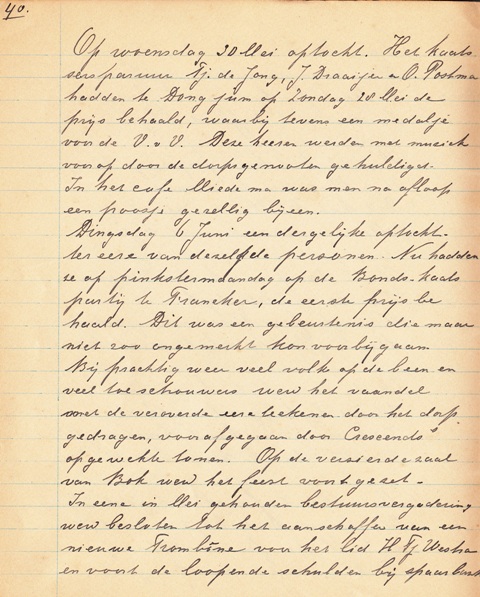 40.
Op woensdag 30 Mei optocht. Het kaats
serspartuur Tj. de Jong, J. Draaijer en O. Postma
hadden te Dongjum op Zondag 28 Mei de
prijs behaald, waarbij tevens een medalje
voor de V.v.V. Deze heeren werden met muziek
voorop door de dorpsgenooten gehuldigd.
In het cafe Miedema was men na afloop
een poosje gezellig bijeen.
Dingsdag 6 Juni een dergelijke optocht
ter eere van dezelfde personen. Nu hadden
ze op pinkstermaandag op de Bonds-kaats
partij te Franeker, de eerste prijs be
haald. Dit was een gebeurtenis die maar
niet zoo ongemerkt kon voorbijgaan
Bij prachtig weer veel volk op de been en
veel toeschouwers werd het vaandel
met de veroverde eereteekenen door het dorp
gedragen, voorafgegaan door Crescendo's
opgewekte tonen. Op de versierde zaal
van Bok werd het feest voortgezet.
In eene in Mei gehouden bestuursvergadering
werd besloten tot het aanschaffen van een
nieuwe Trombône voor het lid H Tj Westra
en voorts de loopende schulden bij spaarbank